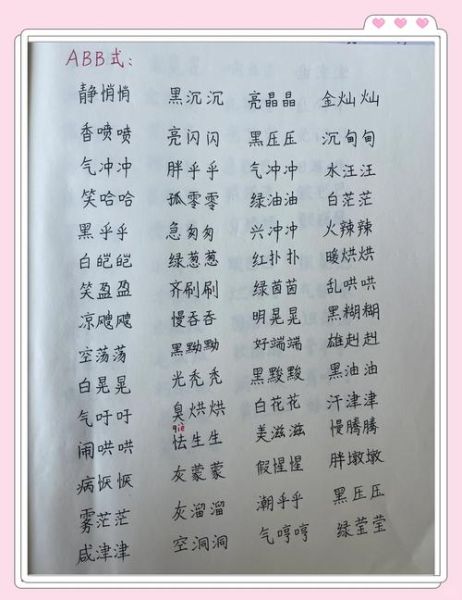 ABB式:
静悄悄 黑沉沉 亮晶晶 金灿灿
香喷喷 亮闪闪 黑压压 沉甸甸
气冲冲 胖乎乎 气冲冲 水汪汪
笑哈哈 孤零零 绿油油 白茫茫
黑乎乎 急匆匆 兴冲冲 火辣辣
白皑皑 绿葱葱 红扑扑 暖烘烘
笑盈盈 齐刷刷 绿茵茵 乱哄哄
凉飕飕 慢吞吞 明晃晃 黑糊糊
空荡荡 黑黝黝 好端端 雄赳赳
白晃晃 光秃秃 黑黢黢 黑油油
气吁吁 臭烘烘 白花花 汗津津
闹哄哄 怯生生 美滋滋 慢腾腾
qiè
病恹恹 灰蒙蒙 假惺惺 胖墩墩
雾茫茫 灰溜溜 潮乎乎 黑压压
咸津津 空洞洞 气哼哼 绿莹莹